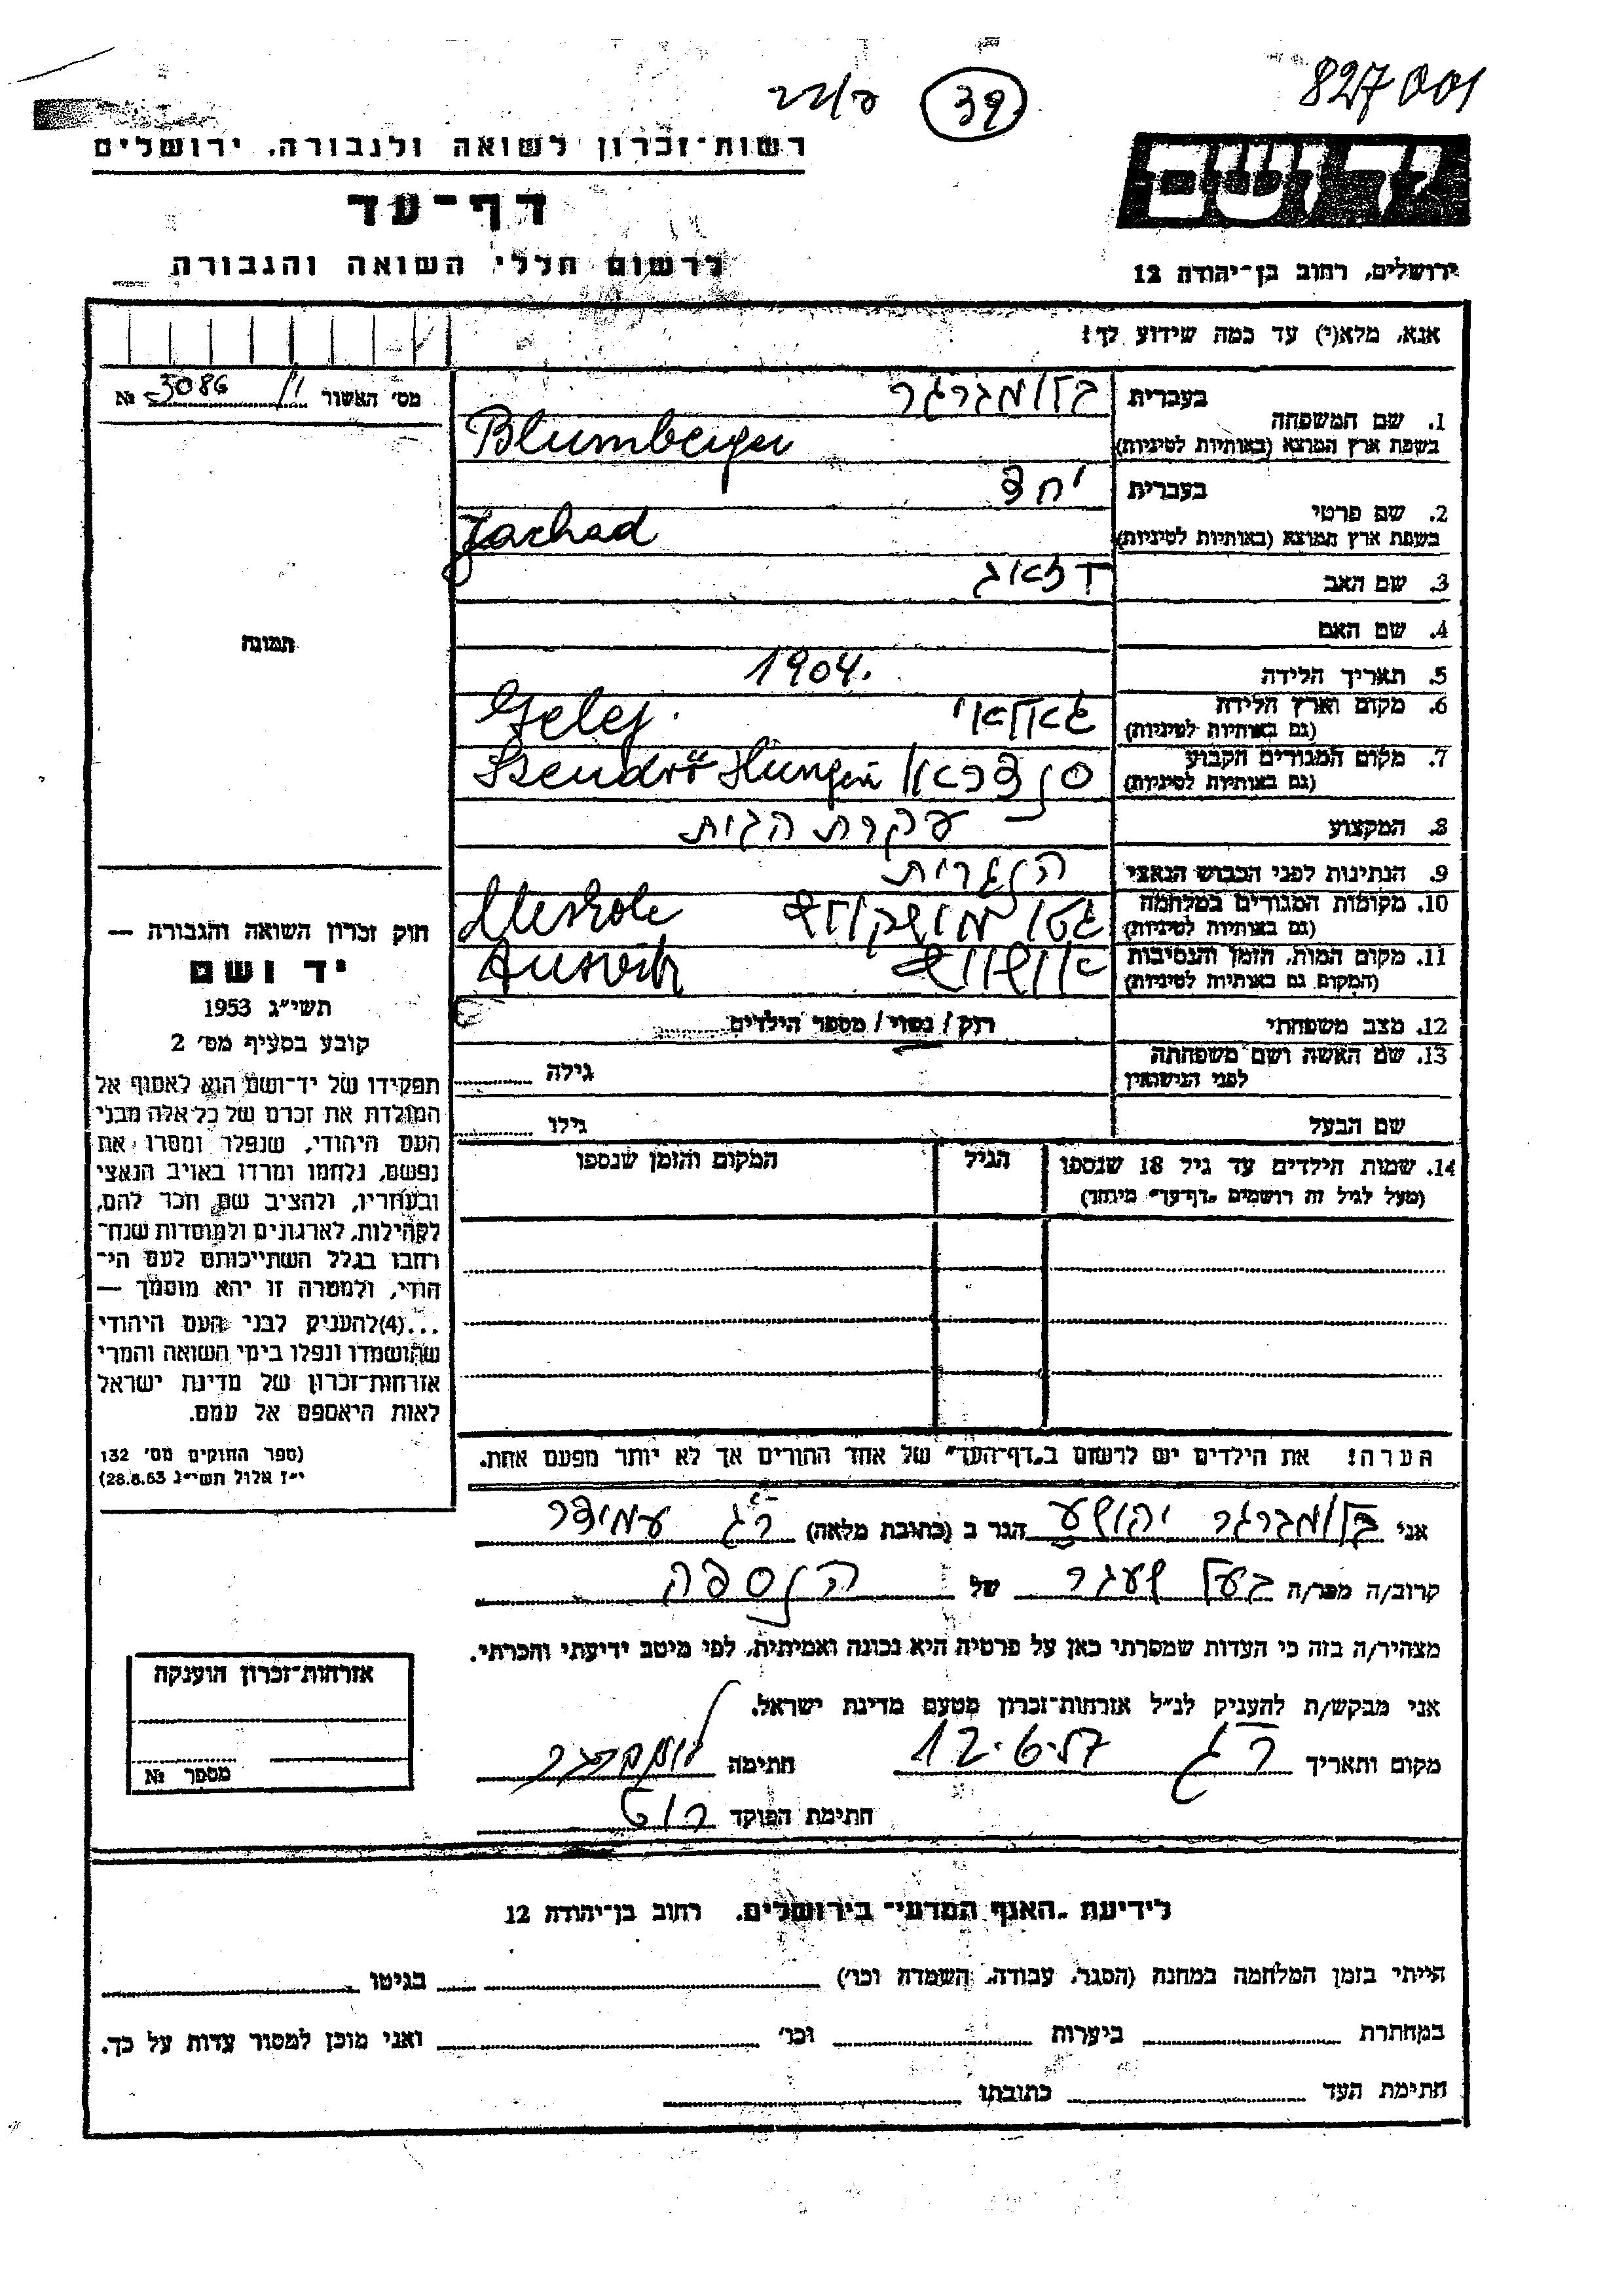 827001
39
רשות־זכרון לשואה ולגבורה, ירושלים
יד ושם
דף־עד
לרשום חללי השואה והגבורה
ירושלים, רחוב בן־יהודה 12
אנא, מלא(י) עד כמה שידוע לך!
מס׳ האשור 3086 №
בעברית בלומברגר
1. שם המשפחה
בשפת ארץ המוצא (באותיות לטיניות) Blumberger
בעברית יחד
2. שם פרטי
בשפת ארץ המוצא (באותיות לטיניות) Jachad
3. שם האב
4. שם האם
תמונה
5. תאריך הלידה 1904.
6. מקום וארץ הלידה
(גם באותיות לטיניות) Gelej.
7. מקום המגורים הקבוע
(גם באותיות לטיניות) Szendrö
8. המקצוע עקרת הבית
9. הנתינות לפני הכבוש הנאצי הונגרית
10. מקומות המגורים במלחמה גטו
(גם באותיות לטיניות)
11. מקום המות, הזמן והנסיבות
(המקום גם באותיות לטיניות)
12. מצב משפחתי רוק / נשוי / מספר הילדים
13. שם האשה ושם משפחתה
לפני הנישואין גילה
שם הבעל גילו
14. שמות הילדים עד גיל 18 שנספו הגיל המקום והזמן שנספו
(מעל לגיל זה רושמים „דף־עד״ מיוחד)
חוק זכרון השואה והגבורה —
יד ושם
תשי״ג 1953
קובע בסעיף מס׳ 2
תפקידו של יד־ושם הוא לאסוף אל
המולדת את זכרם של כל אלה מבני
העם היהודי, שנפלו ומסרו את
נפשם, נלחמו ומרדו באויב הנאצי
ובעוזריו, ולהציב שם וזכר להם,
לקהילות, לארגונים ולמוסדות שנח־
רחבו בגלל השתייכותם לעם הי־
הודי, ולמטרה זו יהא מוסמך —
...(4)להעניק לבני העם היהודי
שהושמדו ונפלו בימי השואה והמרי
אזרחות־זכרון של מדינת ישראל
לאות היאספם אל עמם.
(ספר החוקים מס׳ 132
י״ז אלול תשי״ג 28.8.53)
הערה! את הילדים יש לרשום ב„דף־העד״ של אחד ההורים אך לא יותר מפעם אחת.
אני בלומברגר יהושע הגר ב (כתובת מלאה) ר״ג עמידר
קרוב/ה מכר/ה בעל לשעבר של הנספה
מצהיר/ה בזה כי העדות שמסרתי כאן על פרטיה היא נכונה ואמיתית, לפי מיטב ידיעתי והכרתי.
אני מבקש/ת להעניק לנ״ל אזרחות־זכרון מטעם מדינת ישראל.
מקום ותאריך ר״ג 12.6.57 חתימה בלומברגר
חתימת הפוקד
אזרחות־זכרון הוענקה
מספר №
לידיעת „האגף המדעי״ בירושלים, רחוב בן־יהודה 12
הייתי בזמן המלחמה במחנה (הסגר, עבודה, השמדה וכו׳) בגיטו
במחתרת ביערות וכו׳ ואני מוכן למסור עדות על כך.
חתימת העד כתובתו